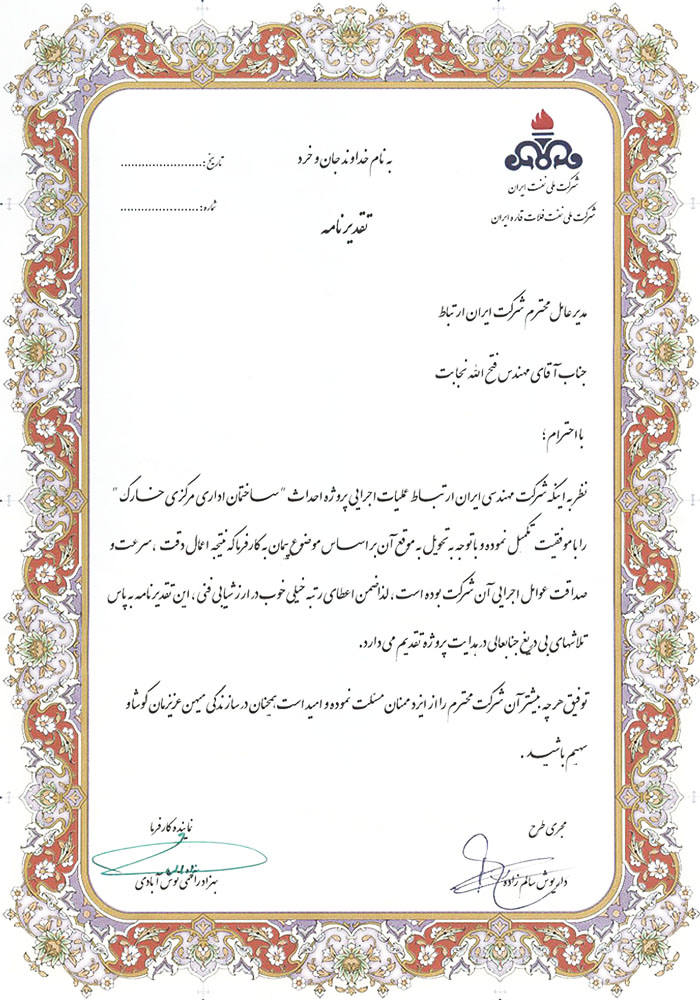 به نام خداوند جان و خرد
تاریخ:.......................
شماره:.......................
شرکت ملی نفت ایران
شرکت ملی نفت فلات قاره ایران
تقدیرنامه
مدیر عامل محترم شرکت ایران ارتباط
جناب آقای مهندس فتح الله نجابت
با احترام ؛
نظر به اینکه شرکت مهندسی ایران ارتباط عملیات اجرایی پروژه احداث " ساختمان اداری مرکزی خارک "
را با موفقیت تکمیل نموده و با توجه به تحویل به موقع آن بر اساس موضوع پیمان به کارفرما که نتیجه اعمال دقت ، سرعت و
صداقت عوامل اجرایی آن شرکت بوده است ، لذا ضمن اعطای رتبه خیلی خوب در ارزشیابی فنی ، این تقدیرنامه به پاس
تلاشهای بی دریغ جنابعالی در هدایت پروژه تقدیم می دارد.
توفیق هر چه بیشتر آن شرکت محترم را از ایزد منان مسئلت نموده و امید است همچنان در سازندگی میهن عزیزمان کوشا و
سهیم باشید .
مجری طرح
نماینده کارفرما
داریوش سالم زاده
بهزاد نوش آبادی